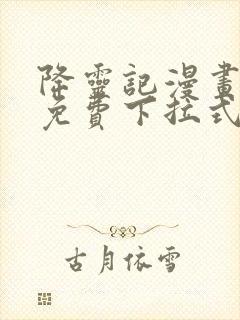 降靈記漫畫
免費下拉式
古月依雪